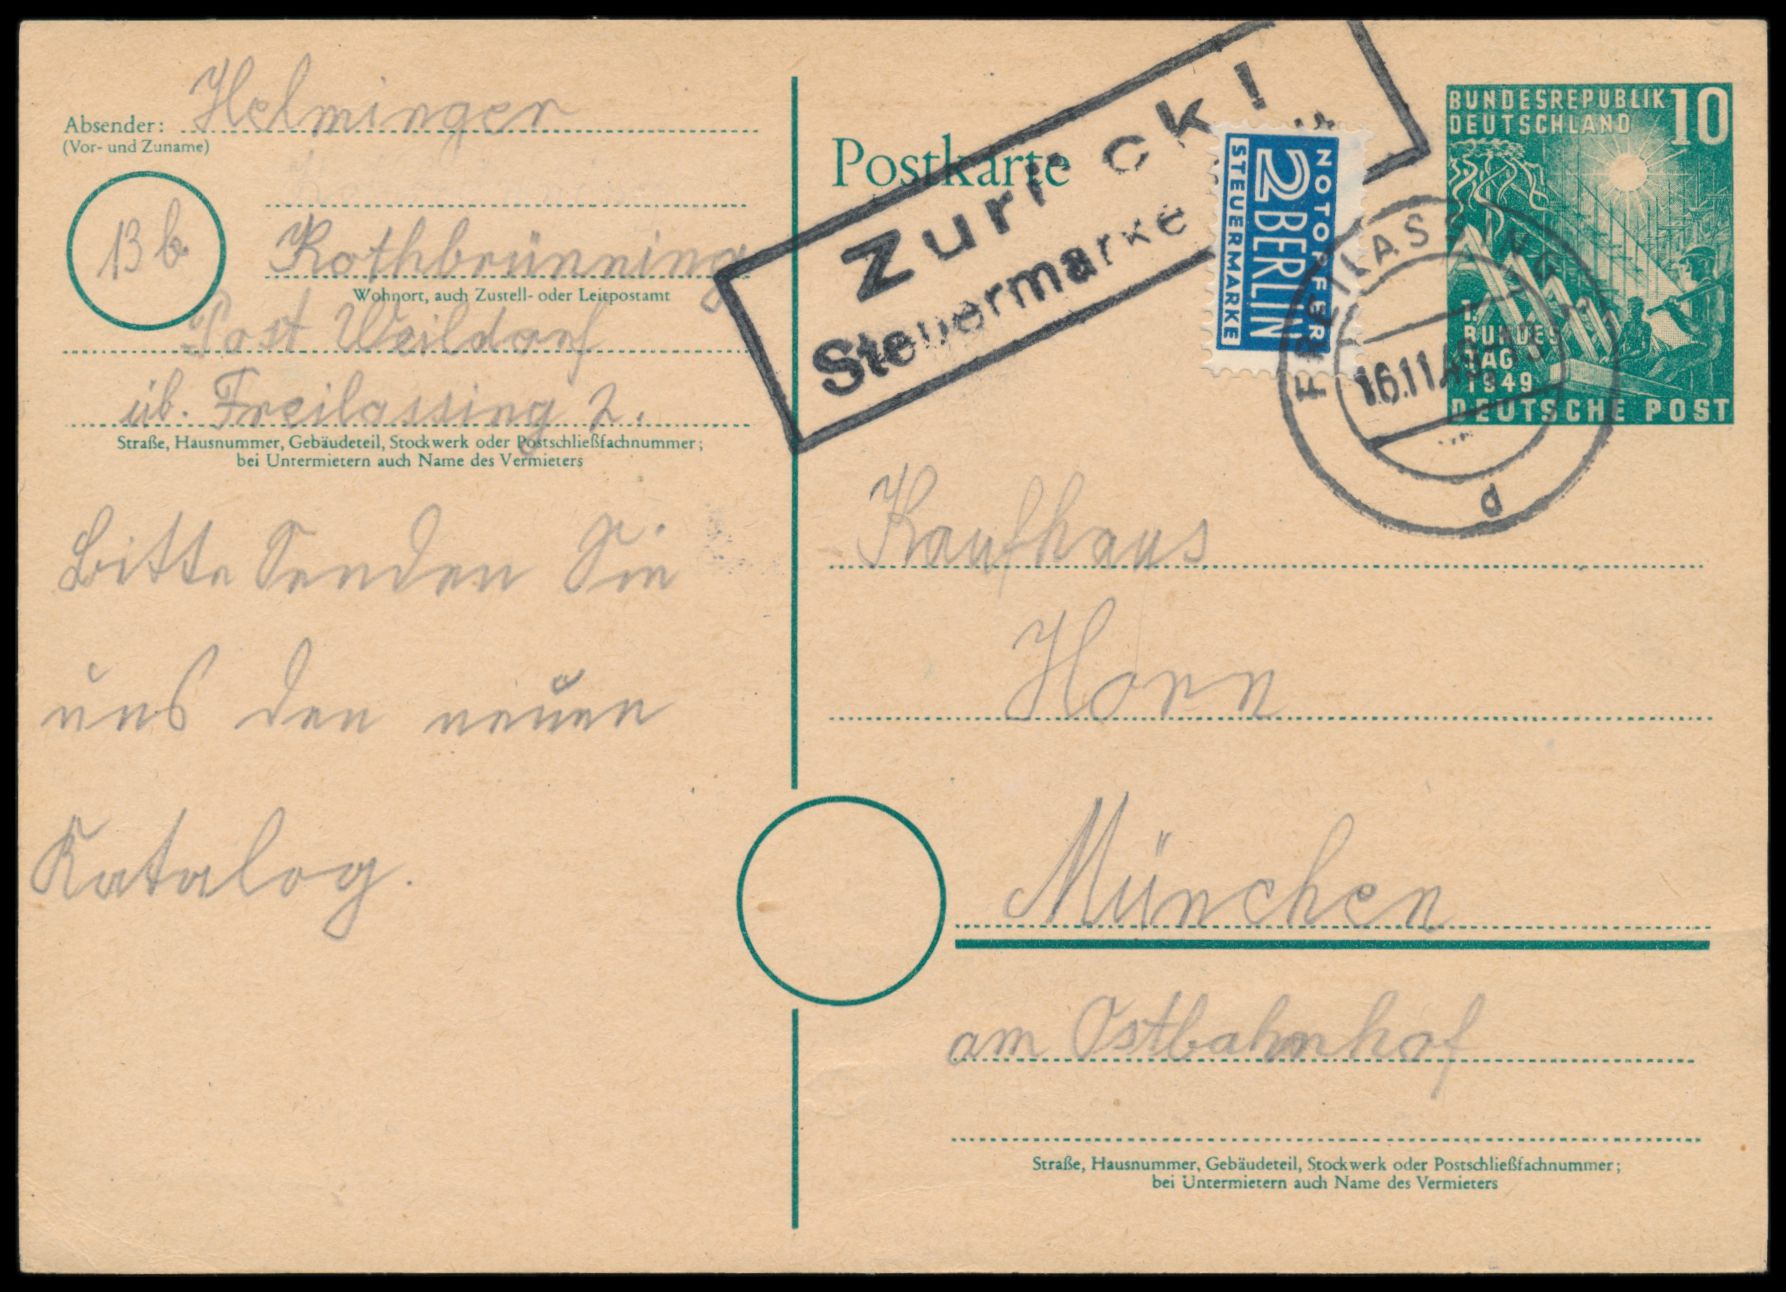 Absender: Helminger
(Vor- und Zuname)
13b
Rothbrünning
Wohnort, auch Zustell- oder Leitpostamt
Post Weildorf
üb. Freilassing 2.
Straße, Hausnummer, Gebäudeteil, Stockwerk oder Postschließfachnummer;
bei Untermietern auch Name des Vermieters
Bitte Senden Sie
uns den neuen
Katalog.
Postkarte
Zurück!
Steuermarke
NOTOPFER
2 BERLIN
STEUERMARKE
BUNDESREPUBLIK 10
DEUTSCHLAND
1.
BUNDES
TAG
1949
DEUTSCHE POST
FREILASSING
16.11.49
d
Kaufhaus
Horn
München
am Ostbahnhof
Straße, Hausnummer, Gebäudeteil, Stockwerk oder Postschließfachnummer;
bei Untermietern auch Name des Vermieters